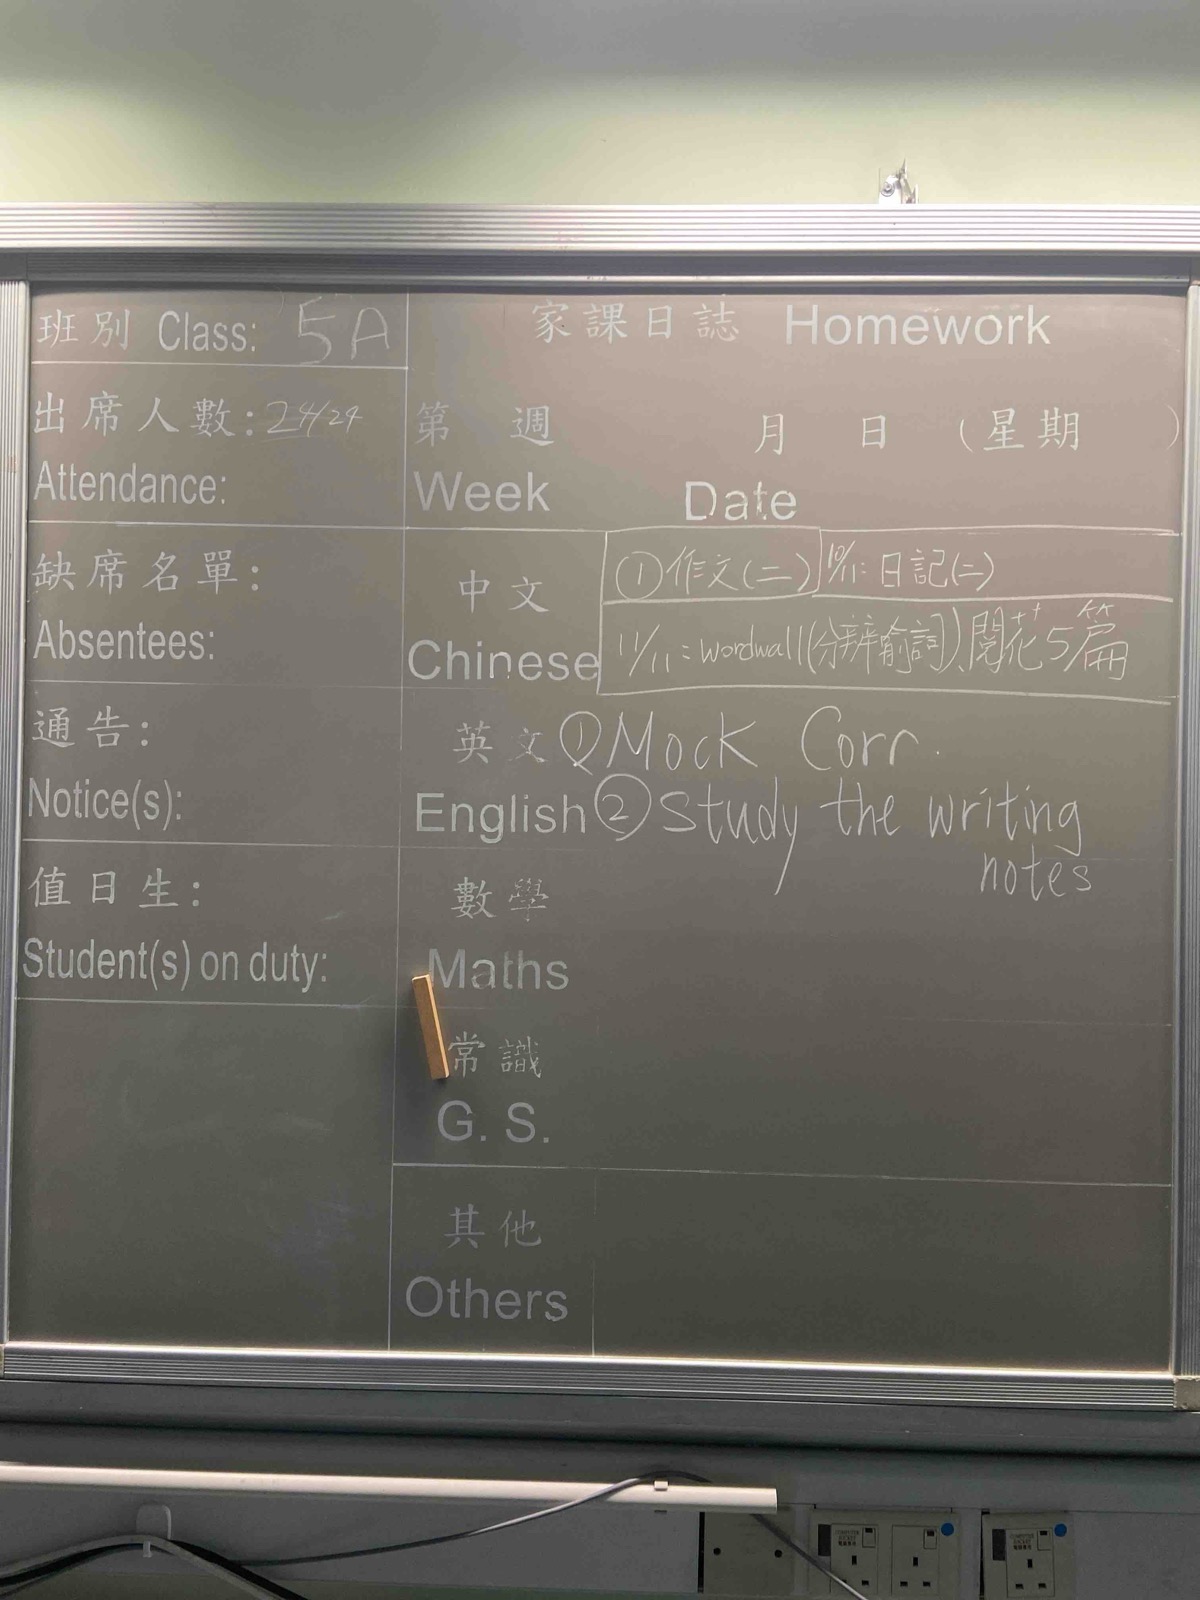 班別 Class: 5A
出席人數: 24/24
Attendance:
缺席名單:
Absentees:
通告:
Notice(s):
值日生:
Student(s) on duty:
家課日誌 Homework
第 週 月 日 (星期 )
Week Date
中文
Chinese
①作文(二) 10/11: 日記(二)
11/11: wordwall(分辨喻詞)、閱花5篇
英文 ①Mock Corr.
English ②Study the writing
notes
數學
Maths
常識
G. S.
其他
Others